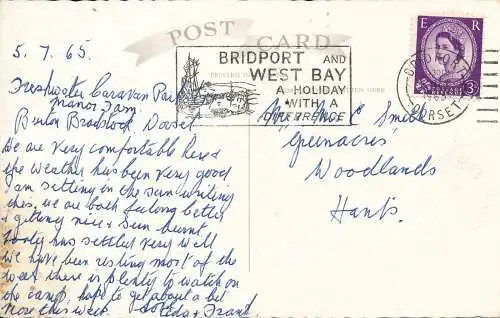 POST CARD
5.7.65.
Freshwater Caravan Park
Manor Farm
Burton Bradstock, Dorset
We are very comfortable here &
the weather has been very good
I am setting in the sun writing
this, we are both feeling better
& getting nice & sun burnt.
has settled very well
we have been resting most of the
week there is plenty to watch on
the camp, hope to get about a bit
more this week. & Frank
BRIDPORT AND
WEST BAY
A HOLIDAY
WITH A
DIFFERENCE
E R
3D
DORSET
Mr & Mrs C Smith
Greenacres
Woodlands
Hants.